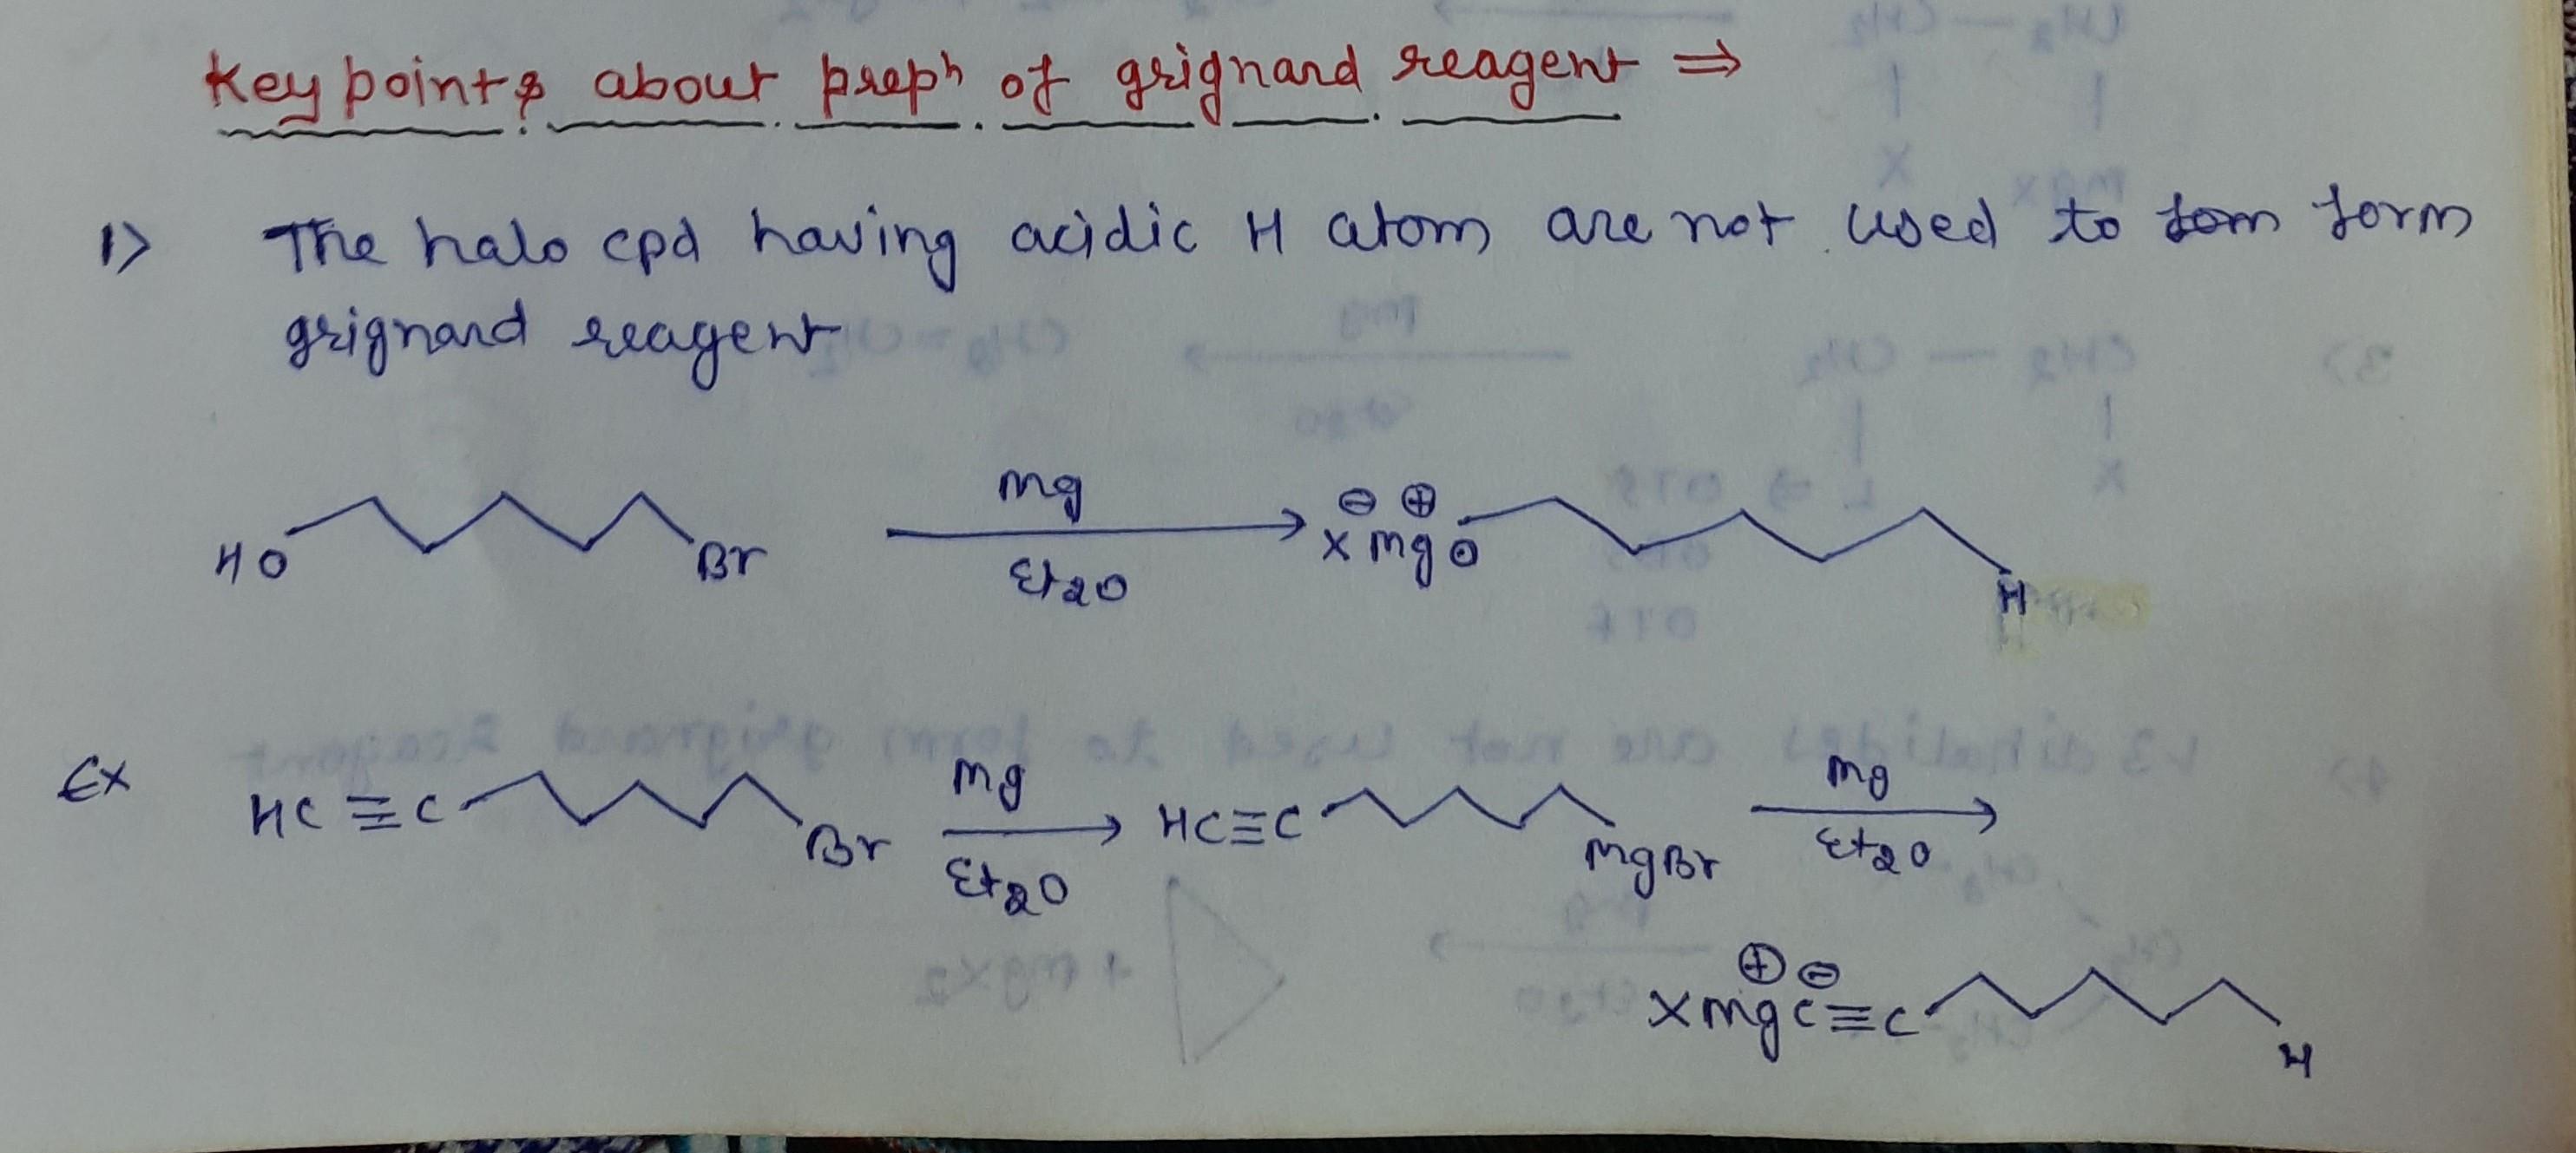 Key points about prepⁿ of grignard reagent ⇒
1> The halo cpd having acidic H atom are not used to form form
grignard reagent
HO Br Mg Et₂O ⊖ ⊕ X Mg O H
Ex HC ≡ C Br Mg Et₂O HC≡C MgBr Mg Et₂O
⊕ ⊖ XMgC≡C H